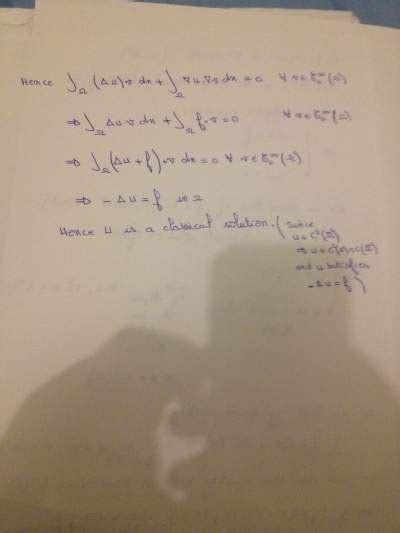 Hence ∫_Ω (Δu)v dx + ∫_Ω ∇u.∇v dx = 0 ∀ v ∈ ℰ_0^∞(Ω)
⇒ ∫_Ω Δu v dx + ∫_Ω f.v = 0 ∀ v ∈ ℰ_0^∞(Ω)
⇒ ∫_Ω (Δu + f).v dx = 0 ∀ v ∈ ℰ_0^∞(Ω)
⇒ -Δu = f in Ω
Hence u is a classical solution. (since
u ∈ C²(Ω̅)
⇒ u ∈ C²(Ω)∩C(Ω̅)
and u satisfies
-Δu = f)